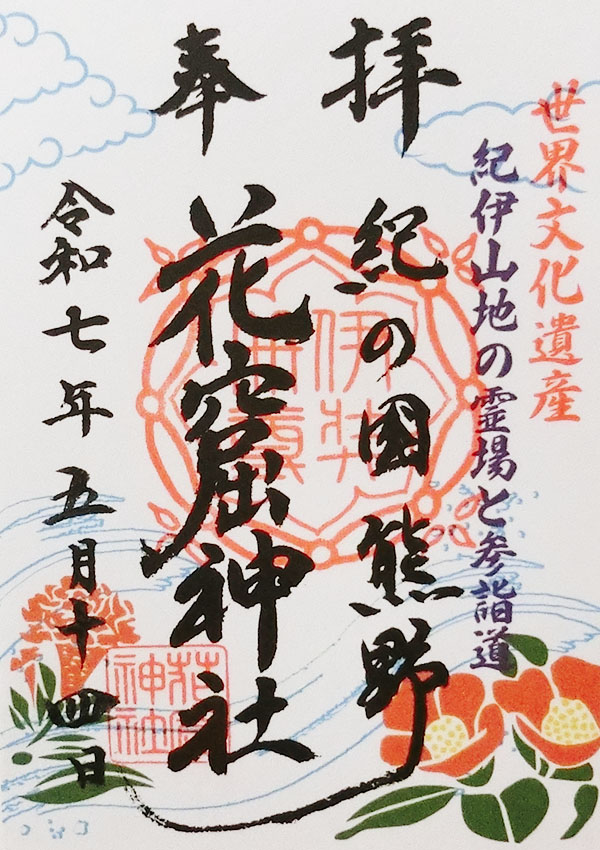 世界文化遺産
紀伊山地の霊場と参詣道
奉拝
紀の国熊野
花窟神社
令和七年五月十四日
花窟神社